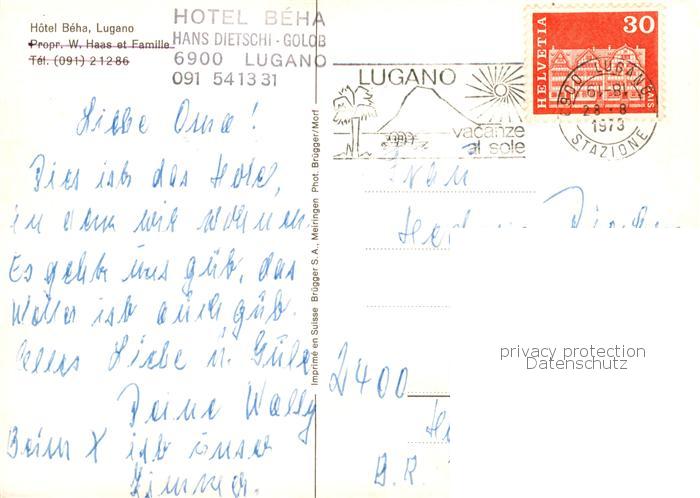 Hôtel Béha, Lugano
Propr. W. Haas et Famille
Tél. (091) 21286
HOTEL BÉHA
HANS DIETSCHI - GOLOB
6900 LUGANO
091 541331
LUGANO
vacanze
al sole
HELVETIA 30
6900 LUGANO
28-8
1973
STAZIONE
Liebe Oma!
Dies ist das Hotel,
in dem wir wohnen.
Es geht uns gut, das
Wetter ist auch gut.
Alles Liebe u. Gute
Deine Wally
Beim X ist unser
Zimmer.
Imprimé en Suisse Brügger S.A., Meiringen Phot. Brügger/Morf
Frau
2400
B.R.
privacy protection
Datenschutz